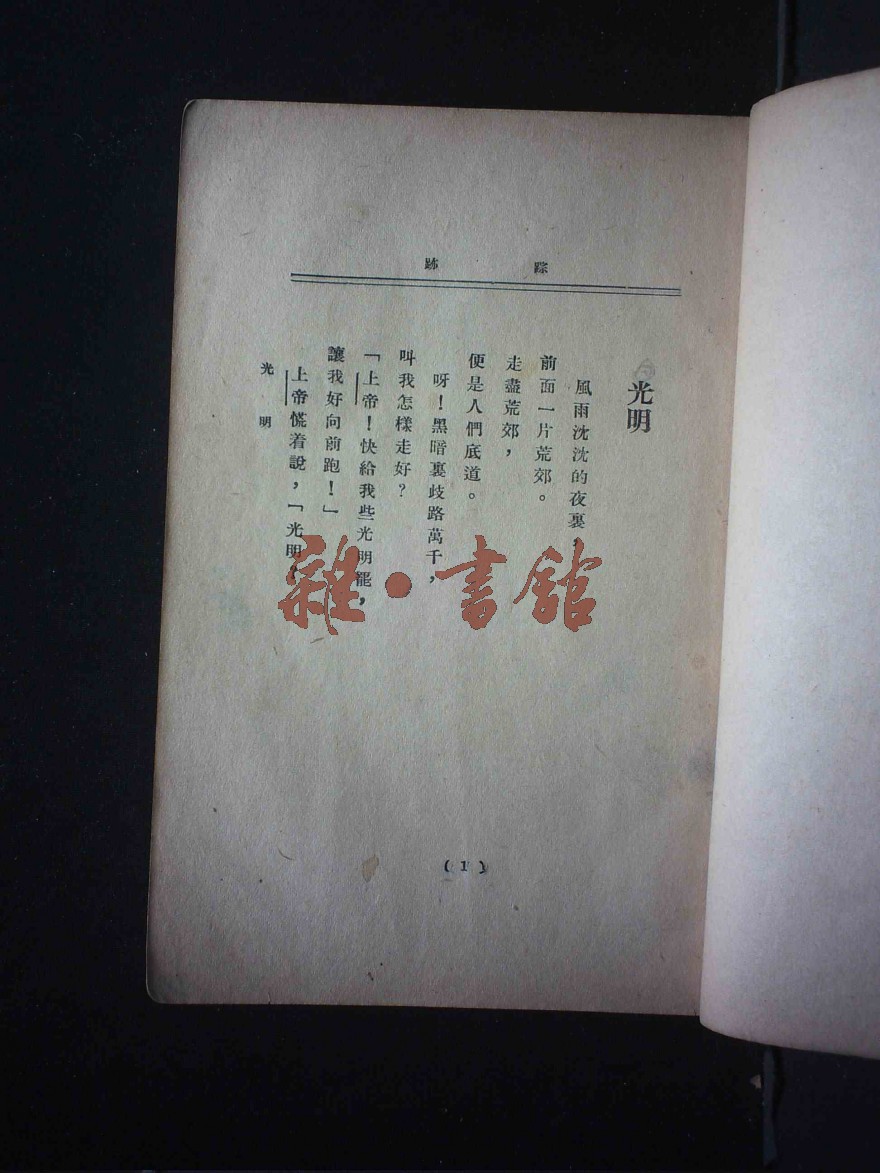 踪跡
光明
風雨沈沈的夜裏,
前面一片荒郊。
走盡荒郊,
便是人們底道。
呀!黑暗裏歧路萬千,
叫我怎樣走好?
「上帝!快給我些光明罷,
讓我好向前跑!」
上帝慌着說,「光明?
光明
(1)
雜·書館